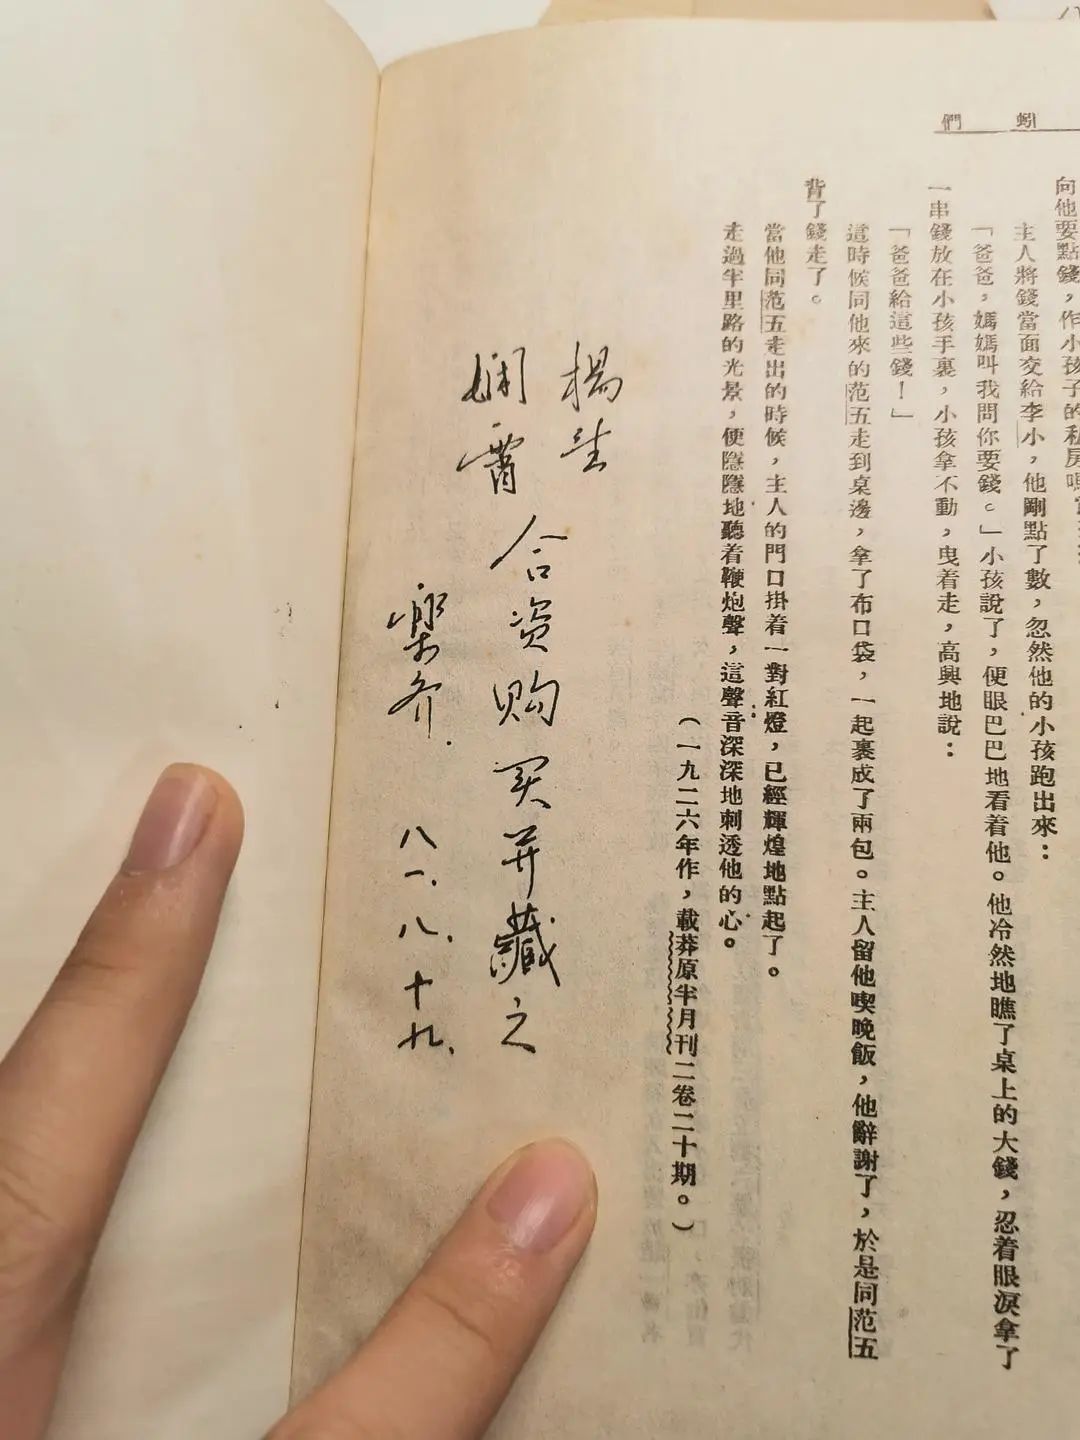 蚓們
向他要點錢，作小孩子的私房
主人將錢當面交給李小，他剛點了數，忽然他的小孩跑出來：
「爸爸，媽媽叫我問你要錢。」小孩說了，便眼巴巴地看着他。他冷然地瞧了桌上的大錢，忍着眼淚拿了
一串錢放在小孩手裏，小孩拿不動，曳着走，高興地說：
「爸爸給這些錢！」
這時候同他來的范五走到桌邊，拿了布口袋，一起裹成了兩包。主人留他喫晚飯，他辭謝了，於是同范五
背了錢走了。
當他同范五走出的時候，主人的門口掛着一對紅燈，已經輝煌地點起了。
走過半里路的光景，便隱隱地聽着鞭炮聲，這聲音深深地刺透他的心。
（一九二六年作，載莽原半月刊二卷二十期。）
楊
嫻霄
合资购买并藏之
八一.八.十九.